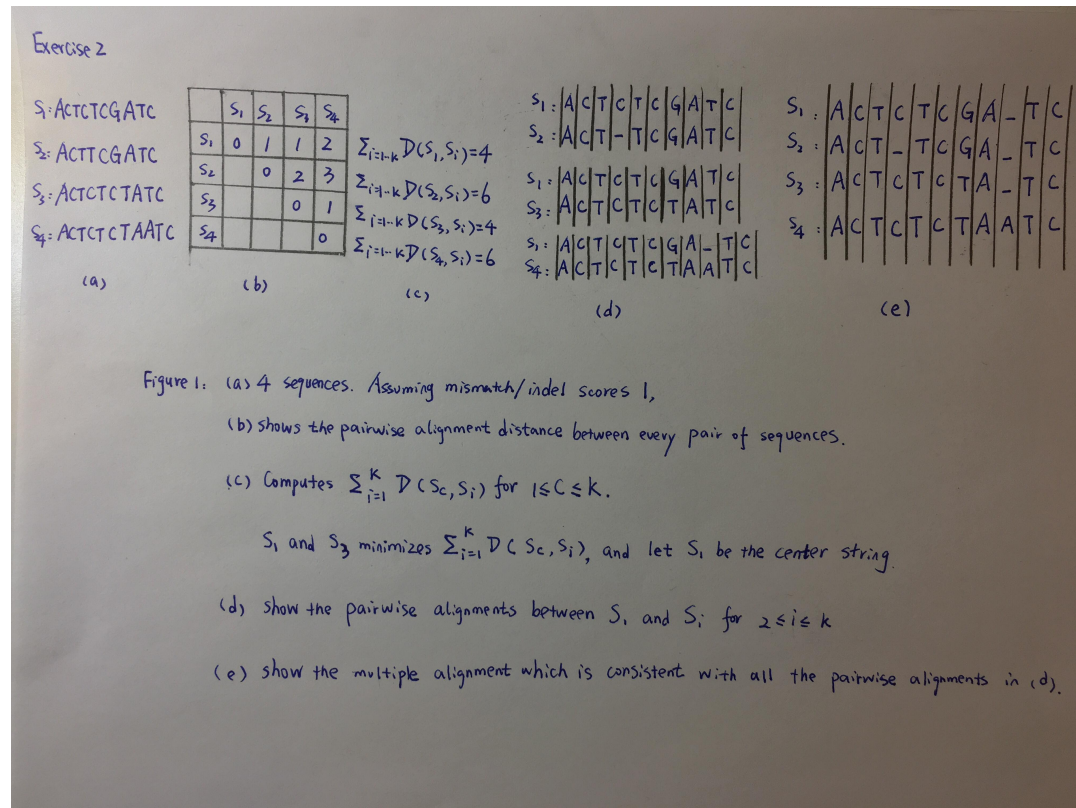 Exercise 2
S₁: ACTCTCGATC
S₂: ACTTCGATC
S₃: ACTCTCTATC
S₄: ACTCTCTAATC
(a)
S₁ S₂ S₃ S₄
S₁ 0 1 1 2
S₂ 0 2 3
S₃ 0 1
S₄ 0
(b)
Σᵢ₌₁..ₖ D(S₁,Sᵢ)=4
Σᵢ₌₁..ₖ D(S₂,Sᵢ)=6
Σᵢ₌₁..ₖ D(S₃,Sᵢ)=4
Σᵢ₌₁..ₖ D(S₄,Sᵢ)=6
(c)
S₁: |A|C|T|C|T|C|G|A|T|C|
S₂: |A|C|T|-|T|C|G|A|T|C|
S₁: |A|C|T|C|T|C|G|A|T|C|
S₃: |A|C|T|C|T|C|T|A|T|C|
S₁: |A|C|T|C|T|C|G|A|_|T|C|
S₄: |A|C|T|C|T|C|T|A|A|T|C|
(d)
S₁: |A|C|T|C|T|C|G|A|_|T|C
S₂: |A|C|T|_|T|C|G|A|_|T|C
S₃: |A|C|T|C|T|C|T|A|_|T|C
S₄: |A|C|T|C|T|C|T|A|A|T|C
(e)
Figure 1: (a) 4 sequences. Assuming mismatch/indel scores 1,
(b) shows the pairwise alignment distance between every pair of sequences.
(c) Computes Σᵢ₌₁ᴷ D(Sc,Sᵢ) for 1≤C≤k.
S₁ and S₃ minimizes Σᵢ₌₁ᴷ D(Sc,Sᵢ), and let S₁ be the center string.
(d) show the pairwise alignments between S₁ and Sᵢ for 2≤i≤k
(e) show the multiple alignment which is consistent with all the pairwise alignments in (d).